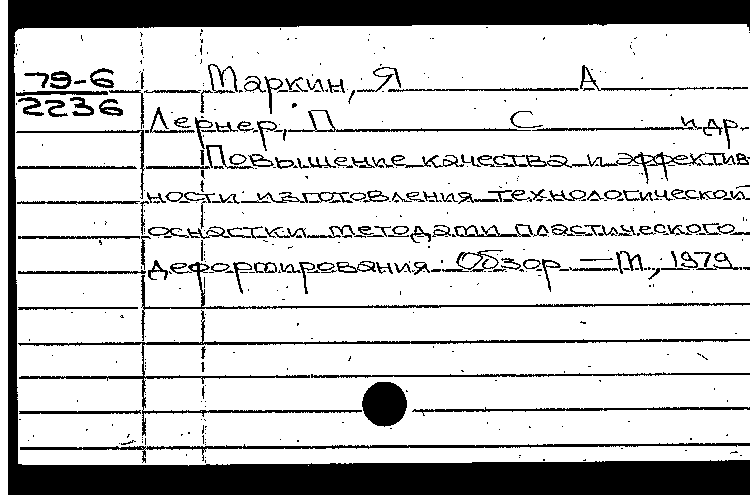 79-6
2236
Маркин, Я А
Лернер, П С и др.
Повышение качества и эффектив-
ности изготовления технологической
оснастки методами пластического
деформирования. Обзор —М., 1979